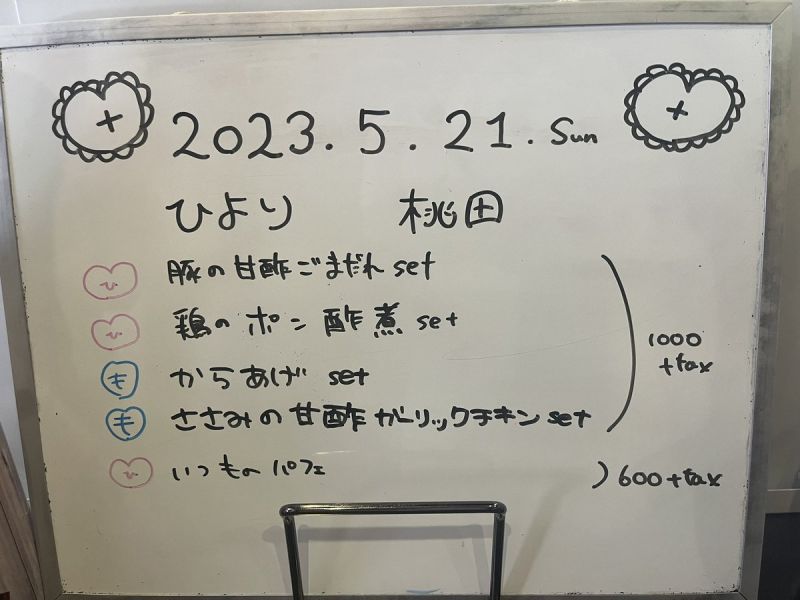 2023.5.21.Sun
ひより 桃田
ひ 豚の甘酢ごまだれ set
ひ 鶏のポン酢煮 set
も からあげ set
1000 +tax
も ささみの甘酢ガーリックチキン set
ひ いつものパフェ 600+tax